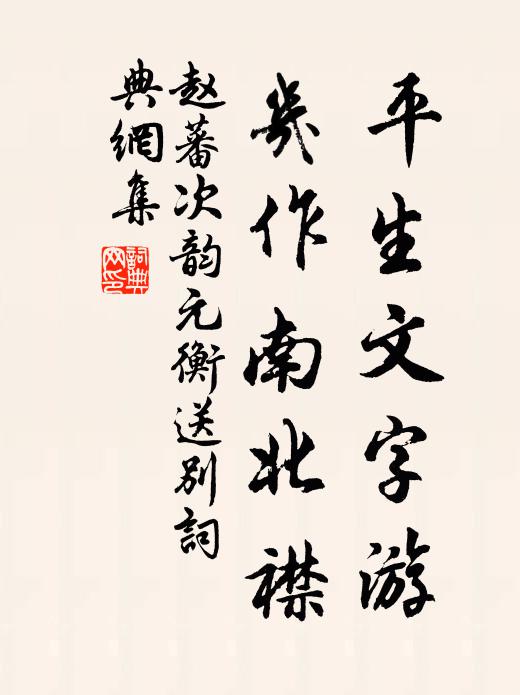 平生文字游
几作南北襟
赵蕃次韵元衡送别詞
典網集
詞典網印